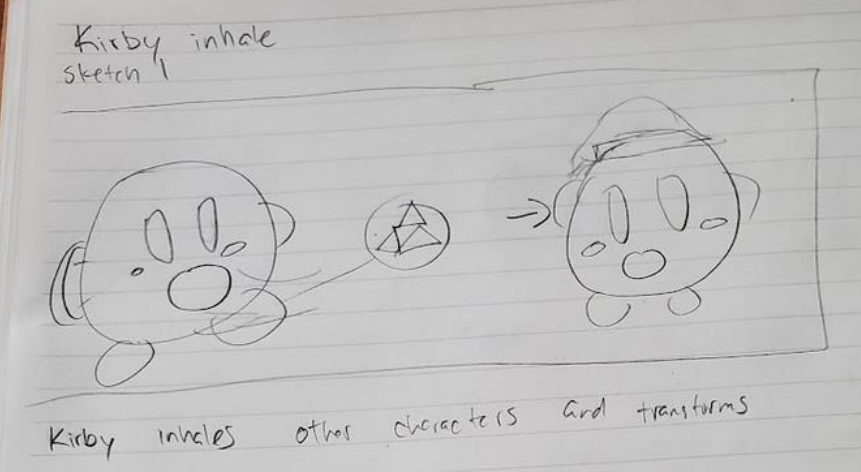 Kirby inhale
Sketch 1
Kirby inhales other characters and transforms